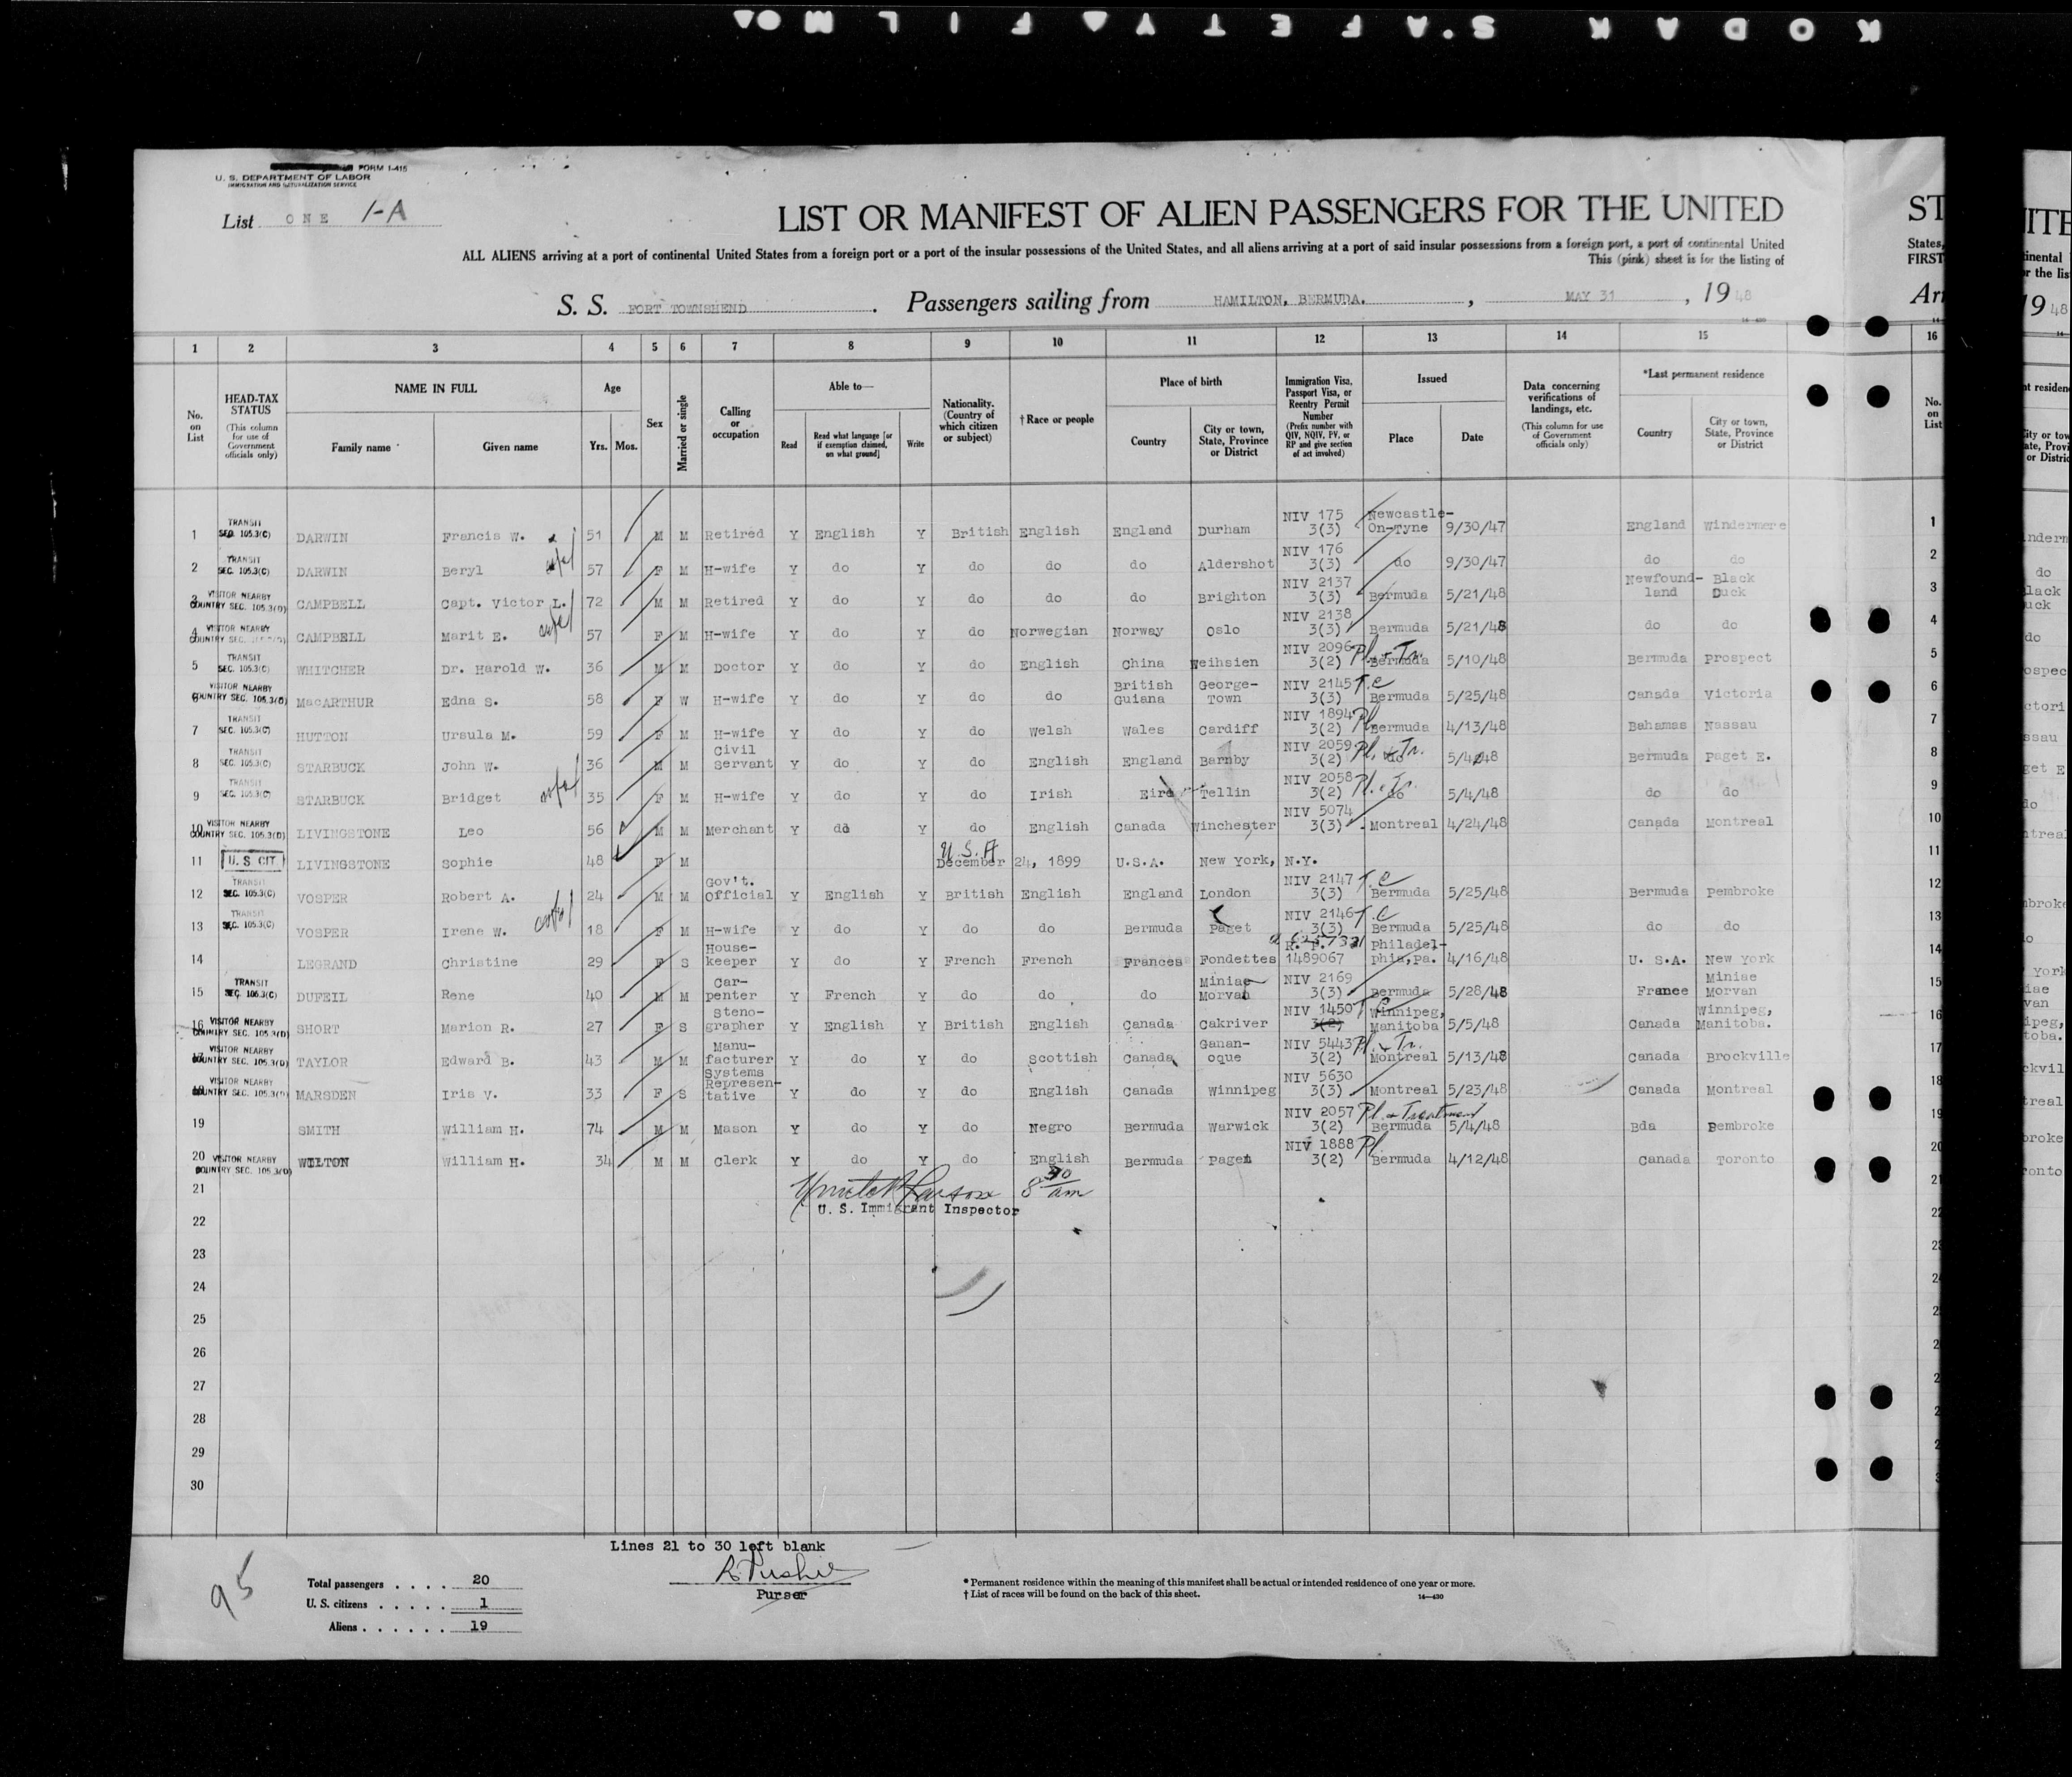 KODAK SAFETY FILM
FORM I-415
U. S. DEPARTMENT OF LABOR
IMMIGRATION AND NATURALIZATION SERVICE
List ONE 1-A
LIST OR MANIFEST OF ALIEN PASSENGERS FOR THE UNITED ST
ALL ALIENS arriving at a port of continental United States from a foreign port or a port of the insular possessions of the United States, and all aliens arriving at a port of said insular possessions from a foreign port, a port of continental United States,
This (pink) sheet is for the listing of FIRST
S. S. FORT TOWNSHEND . Passengers sailing from HAMILTON, BERMUDA. , MAY 31 , 1948
1 2 3 4 5 6 7 8 9 10 11 12 13 14 15 16
No. on List
HEAD-TAX STATUS (This column for use of Government officials only)
NAME IN FULL Family name Given name
Age Yrs. Mos.
Sex
Married or single
Calling or occupation
Able to— Read Read what language [or if exemption claimed, on what ground] Write
Nationality. (Country of which citizen or subject)
†Race or people
Place of birth Country City or town, State, Province or District
Immigration Visa, Passport Visa, or Reentry Permit Number (Prefix number with QIV, NQIV, PV, or RP and give section of act involved)
Issued Place Date
Data concerning verifications of landings, etc. (This column for use of Government officials only)
*Last permanent residence Country City or town, State, Province or District
No. on List
1 TRANSIT SEC. 105.3(C) DARWIN Francis W. 51 M M Retired Y English Y British English England Durham NIV 175 3(3) Newcastle-On-Tyne 9/30/47 England Windermere 1
2 TRANSIT SEC. 105.3(C) DARWIN Beryl 57 F M H-wife Y do Y do do do Aldershot NIV 176 3(3) do 9/30/47 do do 2
3 VISITOR NEARBY COUNTRY SEC. 105.3(D) CAMPBELL Capt. Victor L. 72 M M Retired Y do Y do do do Brighton NIV 2137 3(3) Bermuda 5/21/48 Newfound-land Black Duck 3
4 VISITOR NEARBY COUNTRY SEC. 105.3(D) CAMPBELL Marit E. 57 F M H-wife Y do Y do Norwegian Norway Oslo NIV 2138 3(3) Bermuda 5/21/48 do do 4
5 TRANSIT SEC. 105.3(C) WHITCHER Dr. Harold W. 36 M M Doctor Y do Y do English China Weihsien NIV 2096 3(2) Pl. & Tr. Bermuda 5/10/48 Bermuda Prospect 5
6 VISITOR NEARBY COUNTRY SEC. 105.3(D) MacARTHUR Edna S. 58 F W H-wife Y do Y do do British Guiana George-Town NIV 2145 3(3) T.C Bermuda 5/25/48 Canada Victoria 6
7 TRANSIT SEC. 105.3(C) HUTTON Ursula M. 59 F M H-wife Y do Y do Welsh Wales Cardiff NIV 1894 3(2) Pl. Bermuda 4/13/48 Bahamas Nassau 7
8 TRANSIT SEC. 105.3(C) STARBUCK John W. 36 M M Civil Servant Y do Y do English England Barnby NIV 2059 3(2) Pl. & Tr. do 5/4/48 Bermuda Paget E. 8
9 TRANSIT SEC. 105.3(C) STARBUCK Bridget 35 F M H-wife Y do Y do Irish Eire Tellin NIV 2058 3(2) Pl. & Tr. do 5/4/48 do do 9
10 VISITOR NEARBY COUNTRY SEC. 105.3(D) LIVINGSTONE Leo 56 M M Merchant Y do Y do English Canada Winchester NIV 5074 3(3) Montreal 4/24/48 Canada Montreal 10
11 U. S. CIT LIVINGSTONE Sophie 48 F M U.S.A December 24, 1899 U.S.A. New York, N.Y. 11
12 TRANSIT SEC. 105.3(C) VOSPER Robert A. 24 M M Gov't. Official Y English Y British English England London NIV 2147 3(3) T.C Bermuda 5/25/48 Bermuda Pembroke 12
13 TRANSIT SEC. 105.3(C) VOSPER Irene W. 18 F M H-wife Y do Y do do Bermuda Paget NIV 2146 3(3) T.C Bermuda 5/25/48 do do 13
14 LEGRAND Christine 29 F S House-keeper Y do Y French French Frances Fondettes R. P. 1489067 Philadel-phia,Pa. 4/16/48 U. S.A. New York 14
15 TRANSIT SEC. 105.3(C) DUFEIL Rene 40 M M Car-penter Y French Y do do do Miniac Morvan NIV 2169 3(3) Bermuda 5/28/48 France Miniae Morvan 15
16 VISITOR NEARBY COUNTRY SEC. 105.3(D) SHORT Marion R. 27 F S Steno-grapher Y English Y British English Canada Oakriver NIV 1450 3(2) Winnipeg, Manitoba 5/5/48 Canada Winnipeg, Manitoba. 16
17 VISITOR NEARBY COUNTRY SEC. 105.3(D) TAYLOR Edward B. 43 M M Manu-facturer Y do Y do Scottish Canada Ganan-oque NIV 5443 3(2) Pl. & Tr. Montreal 5/13/48 Canada Brockville 17
18 VISITOR NEARBY COUNTRY SEC. 105.3(D) MARSDEN Iris V. 33 F S Systems Represen-tative Y do Y do English Canada Winnipeg NIV 5630 3(3) Montreal 5/23/48 Canada Montreal 18
19 SMITH William H. 74 M M Mason Y do Y do Negro Bermuda Warwick NIV 2057 3(2) Pl. & Treatment Bermuda 5/4/48 Bda Pembroke 19
20 VISITOR NEARBY COUNTRY SEC. 105.3(D) WILTON William H. 34 M M Clerk Y do Y do English Bermuda Paget NIV 1888 3(2) Pl Bermuda 4/12/48 Canada Toronto 20
21 8 30 am 21
U. S. Immigrant Inspector
22
23
24
25
26
27
28
29
30
Lines 21 to 30 left blank
Purser
95
Total passengers . . . . 20
U. S. citizens . . . . . 1
Aliens . . . . . . 19
* Permanent residence within the meaning of this manifest shall be actual or intended residence of one year or more.
† List of races will be found on the back of this sheet.
14—430